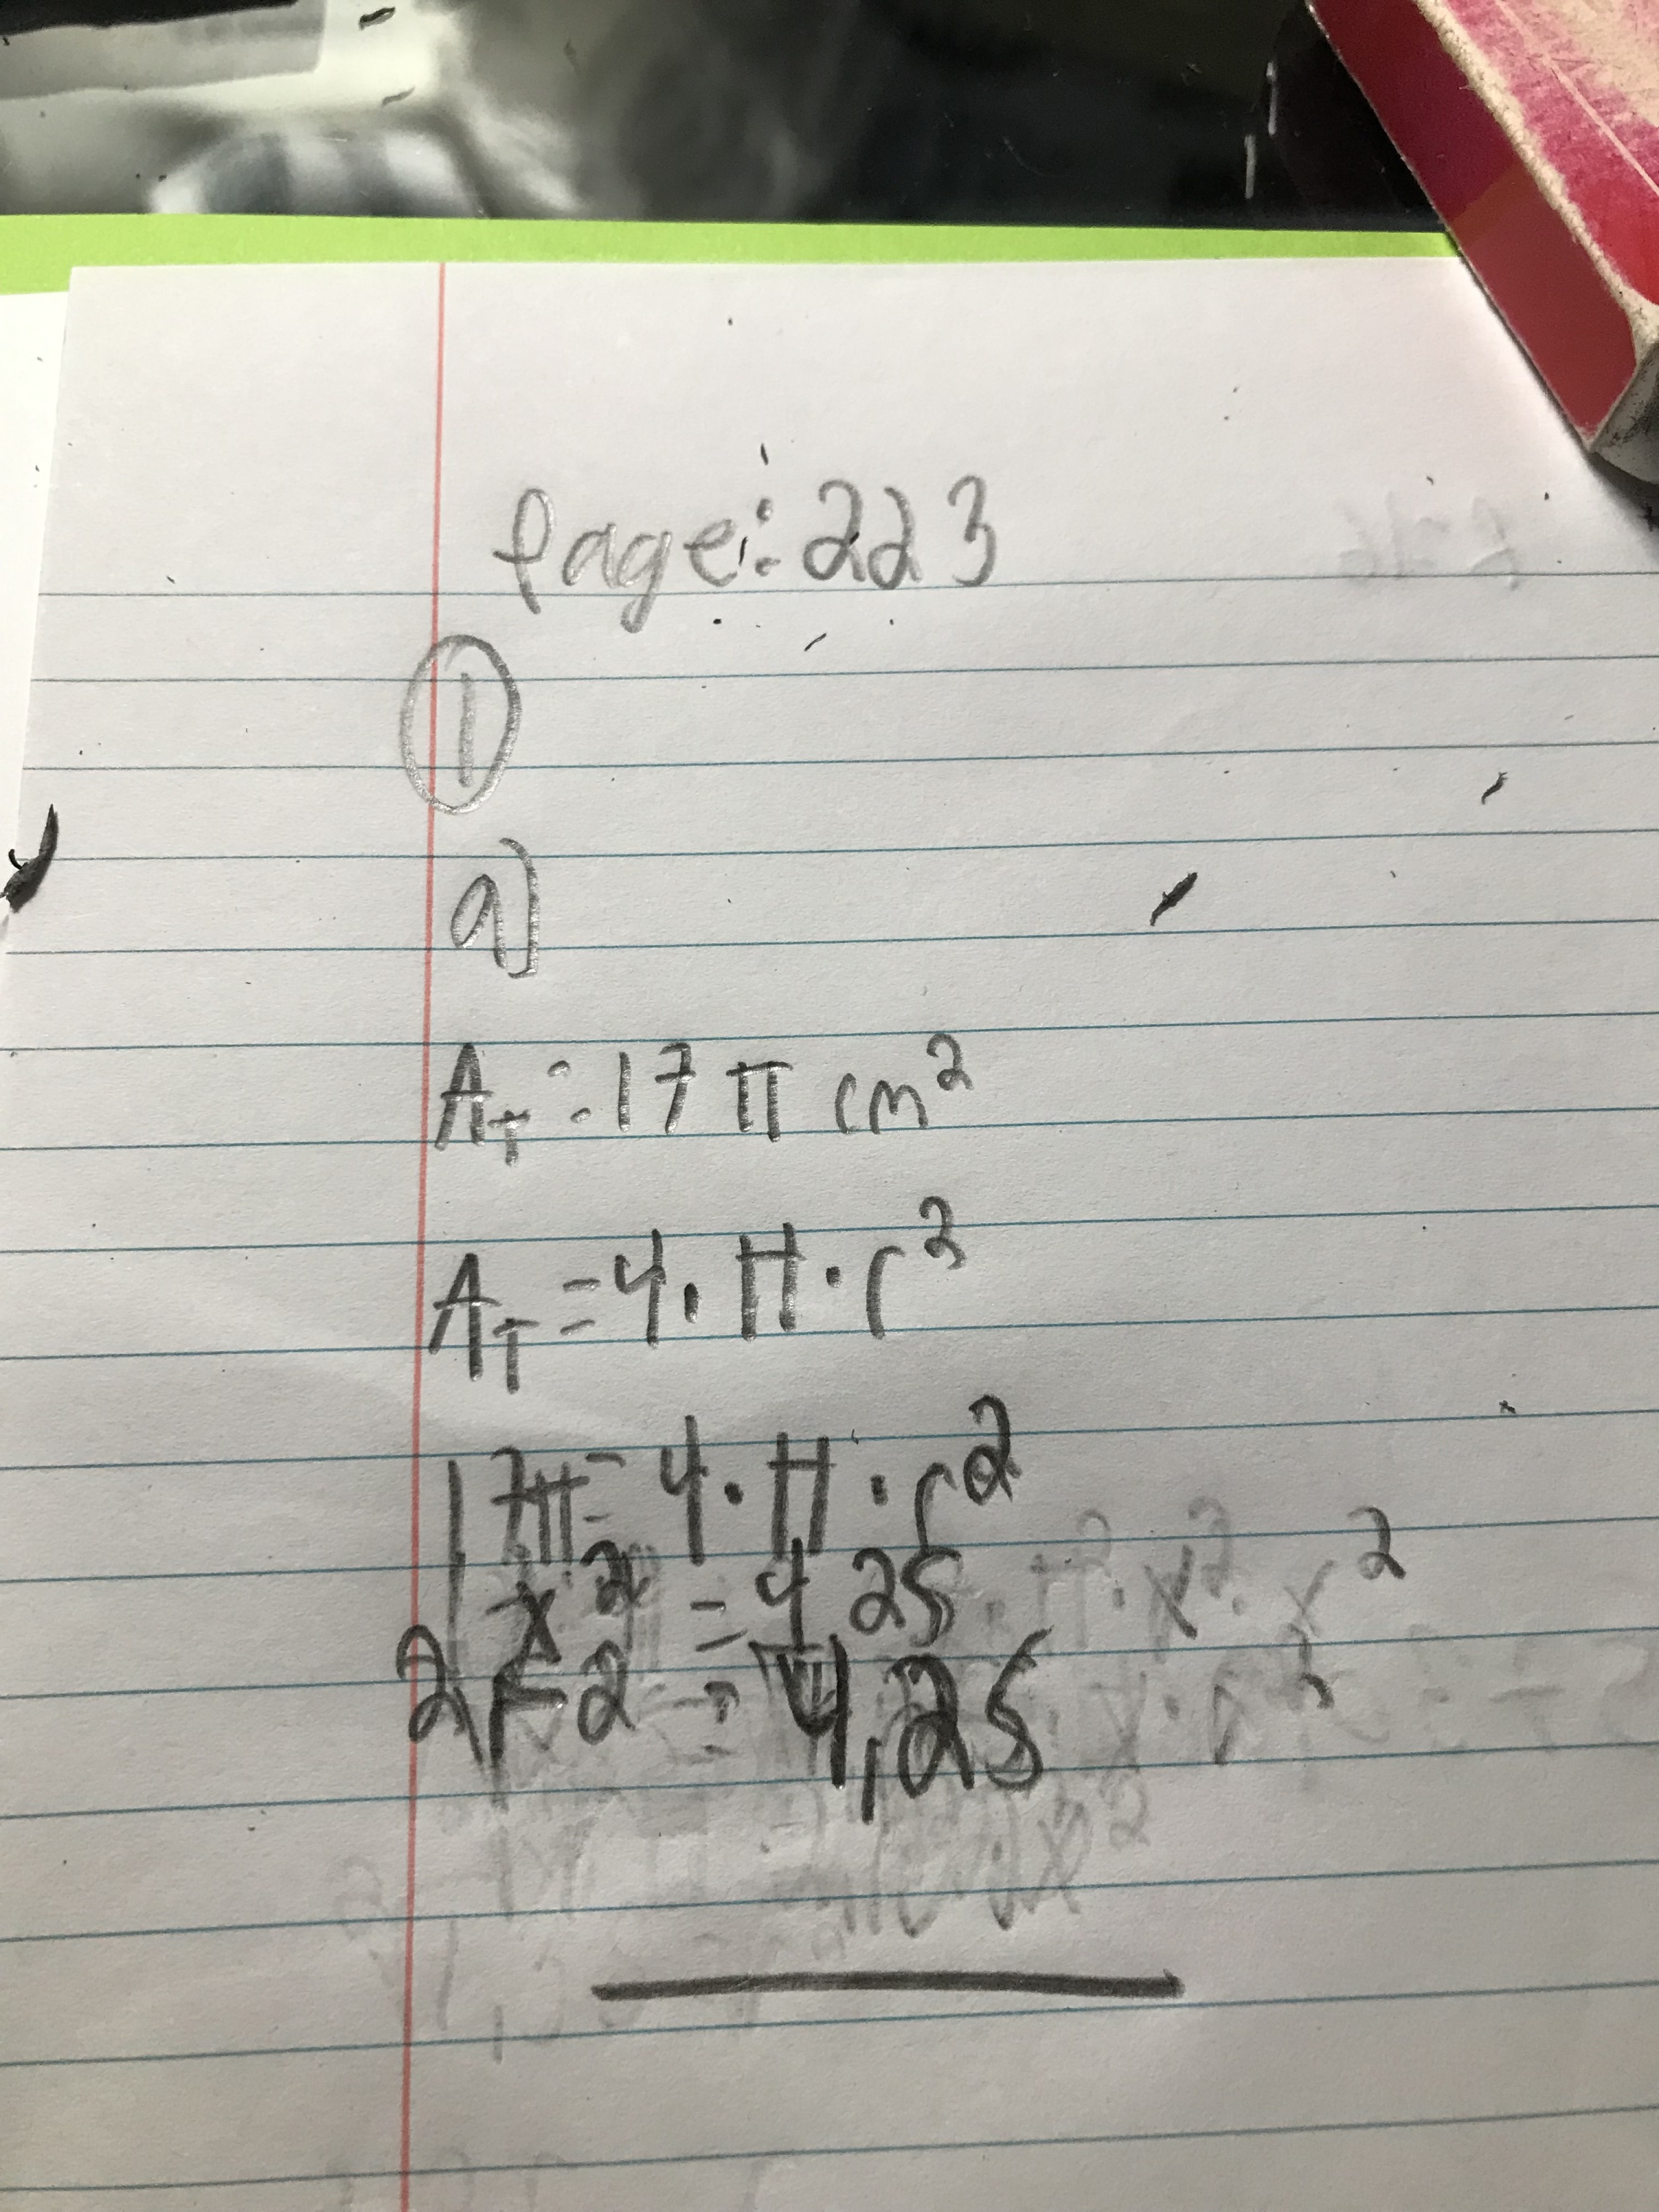 Page: 223
1
a)
A_T = 17 π cm²
A_T = 4 · π · r²
17π = 4 · π · r²
x² = 4 25
2 = 4,25